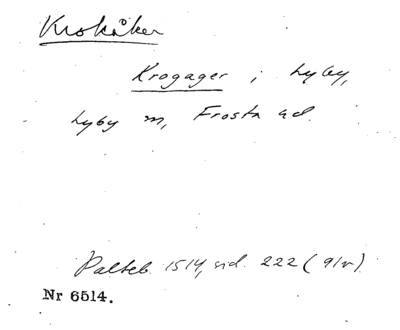 Krokåker
Krogager i Lyby,
Lyby sn, Frosta hd.
Palteb. 1514, sid. 222 (9/v).
Nr 6514.